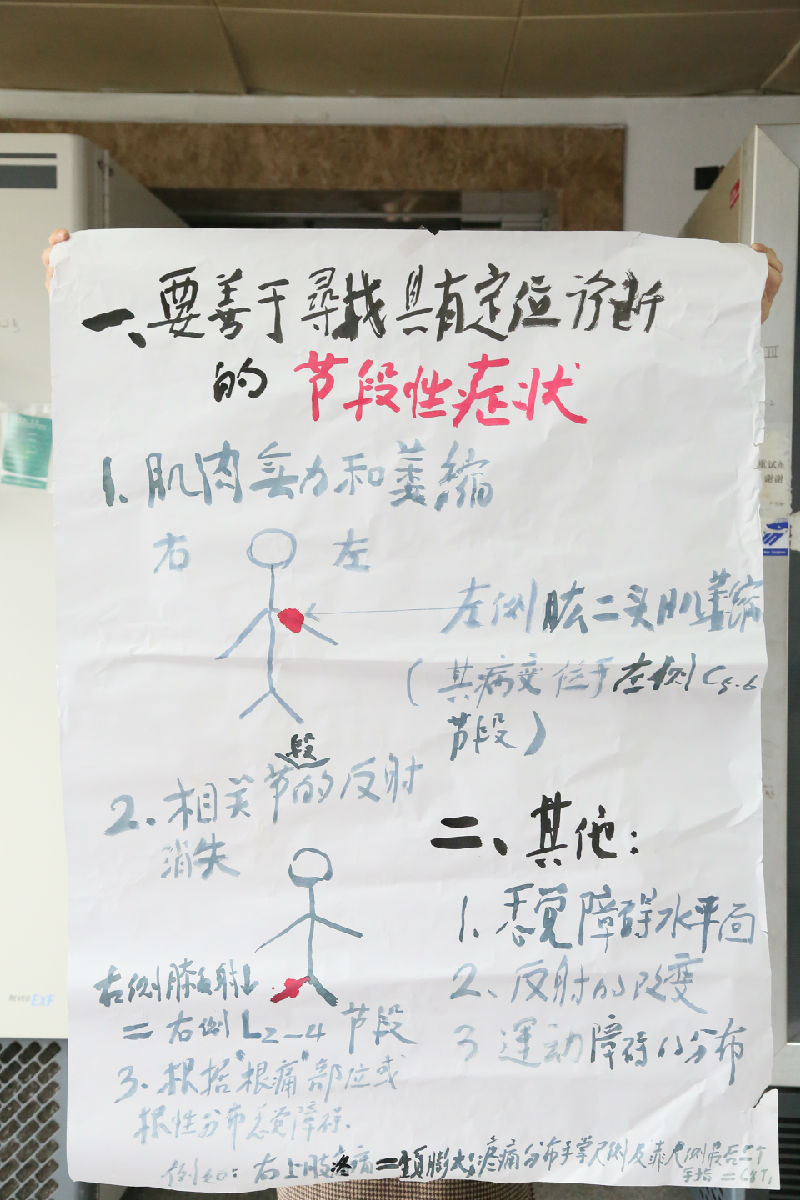 一、要善于寻找具有定位诊断
的 节段性症状
1. 肌肉无力和萎缩
右 左
左侧肱二头肌萎缩
(其病变位于左侧C5.6
节段)
2. 相关节段的反射
消失
右侧膝反射↓
= 右侧L2-4 节段
3. 根据"根痛"部位或
根性分布感觉障碍.
例如: 右上肢疼痛=颈膨大;疼痛分布手掌尺侧及靠尺侧最后二个
手指=C8T1
二、其他:
1. 感觉障碍水平面
2、反射的改变
3 运动障碍的分布
重试剂
谢谢
EXF